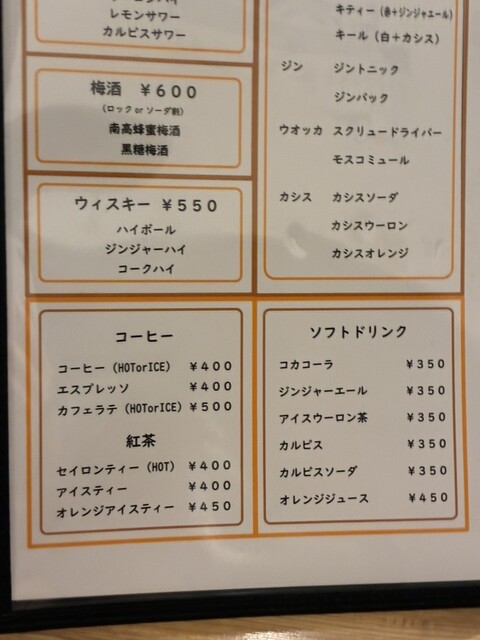 レモンサワー
カルピスサワー
梅酒 ￥６００
(ロック or ソーダ割)
南高蜂蜜梅酒
黒糖梅酒
ウィスキー ￥５５０
ハイボール
ジンジャーハイ
コークハイ
キティー (赤＋ジンジャエール)
キール (白＋カシス)
ジン ジントニック
ジンバック
ウオッカ スクリュードライバー
モスコミュール
カシス カシスソーダ
カシスウーロン
カシスオレンジ
コーヒー
コーヒー (HOTorICE) ￥４００
エスプレッソ ￥４００
カフェラテ (HOTorICE) ￥５００
紅茶
セイロンティー (HOT) ￥４００
アイスティー ￥４００
オレンジアイスティー ￥４５０
ソフトドリンク
コカコーラ ￥３５０
ジンジャーエール ￥３５０
アイスウーロン茶 ￥３５０
カルピス ￥３５０
カルピスソーダ ￥３５０
オレンジジュース ￥４５０